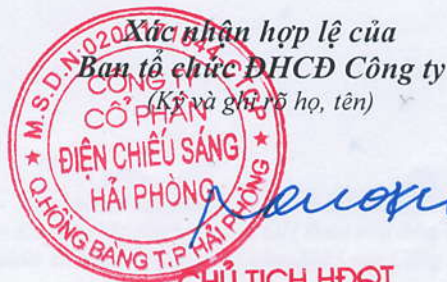 Xác nhận hợp lệ của
Ban tổ chức ĐHCĐ Công ty
(Ký và ghi rõ họ, tên)
CÔNG TY
CỔ PHẦN
ĐIỆN CHIẾU SÁNG
HẢI PHÒNG
Q.HỒNG BÀNG T.P HẢI PHÒNG
CHỦ TỊCH HĐQT